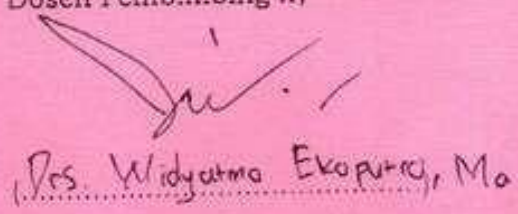 Dosen Pembimbing II,
(Drs. Widyatmo Ekoputro, Ma